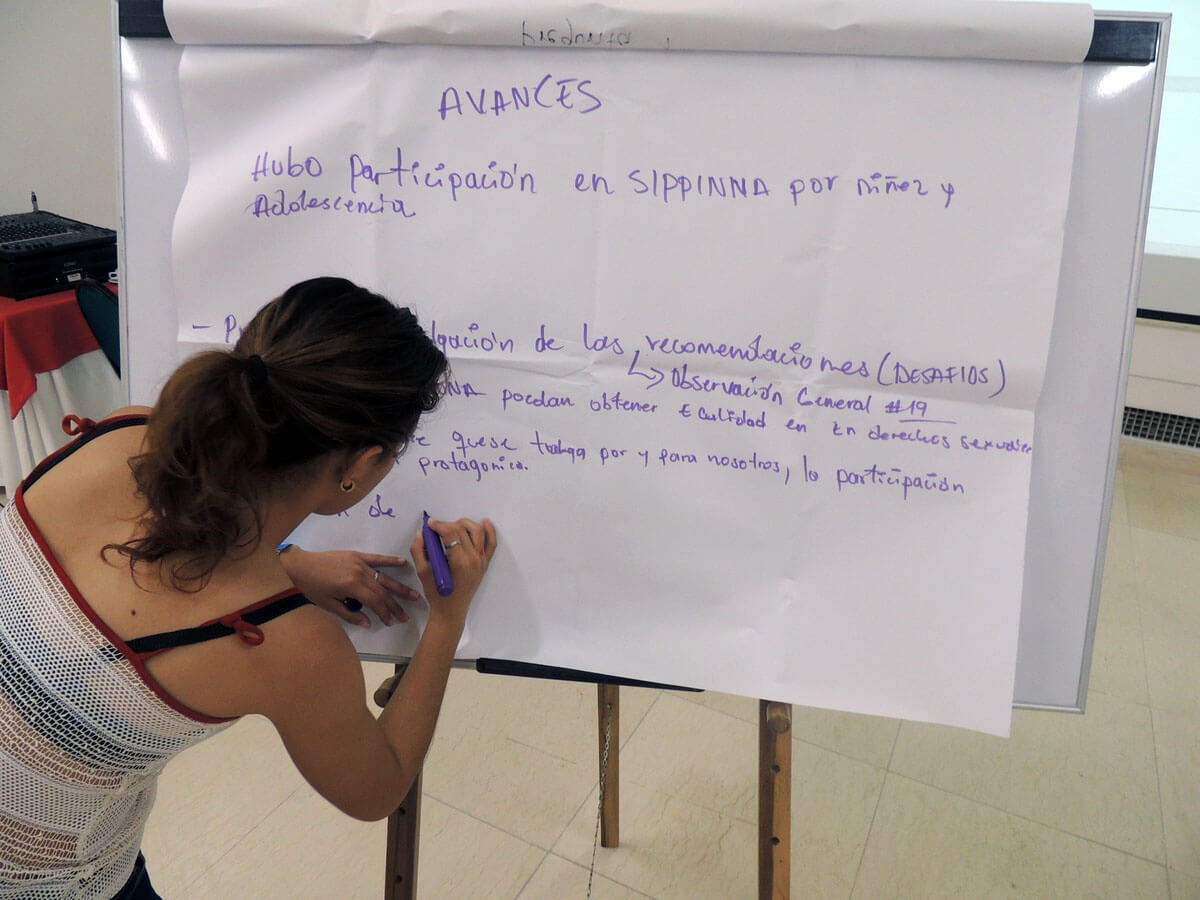 AVANCES
Hubo participación en SIPPINNA por niñez y
Adolescencia
- de las recomendaciones (DESAFIOS)
↳ Observación General #19
puedan obtener Equlidad en En derechos sexuales
quese trabaja por y para nosotros, la participación
protagonica.
de